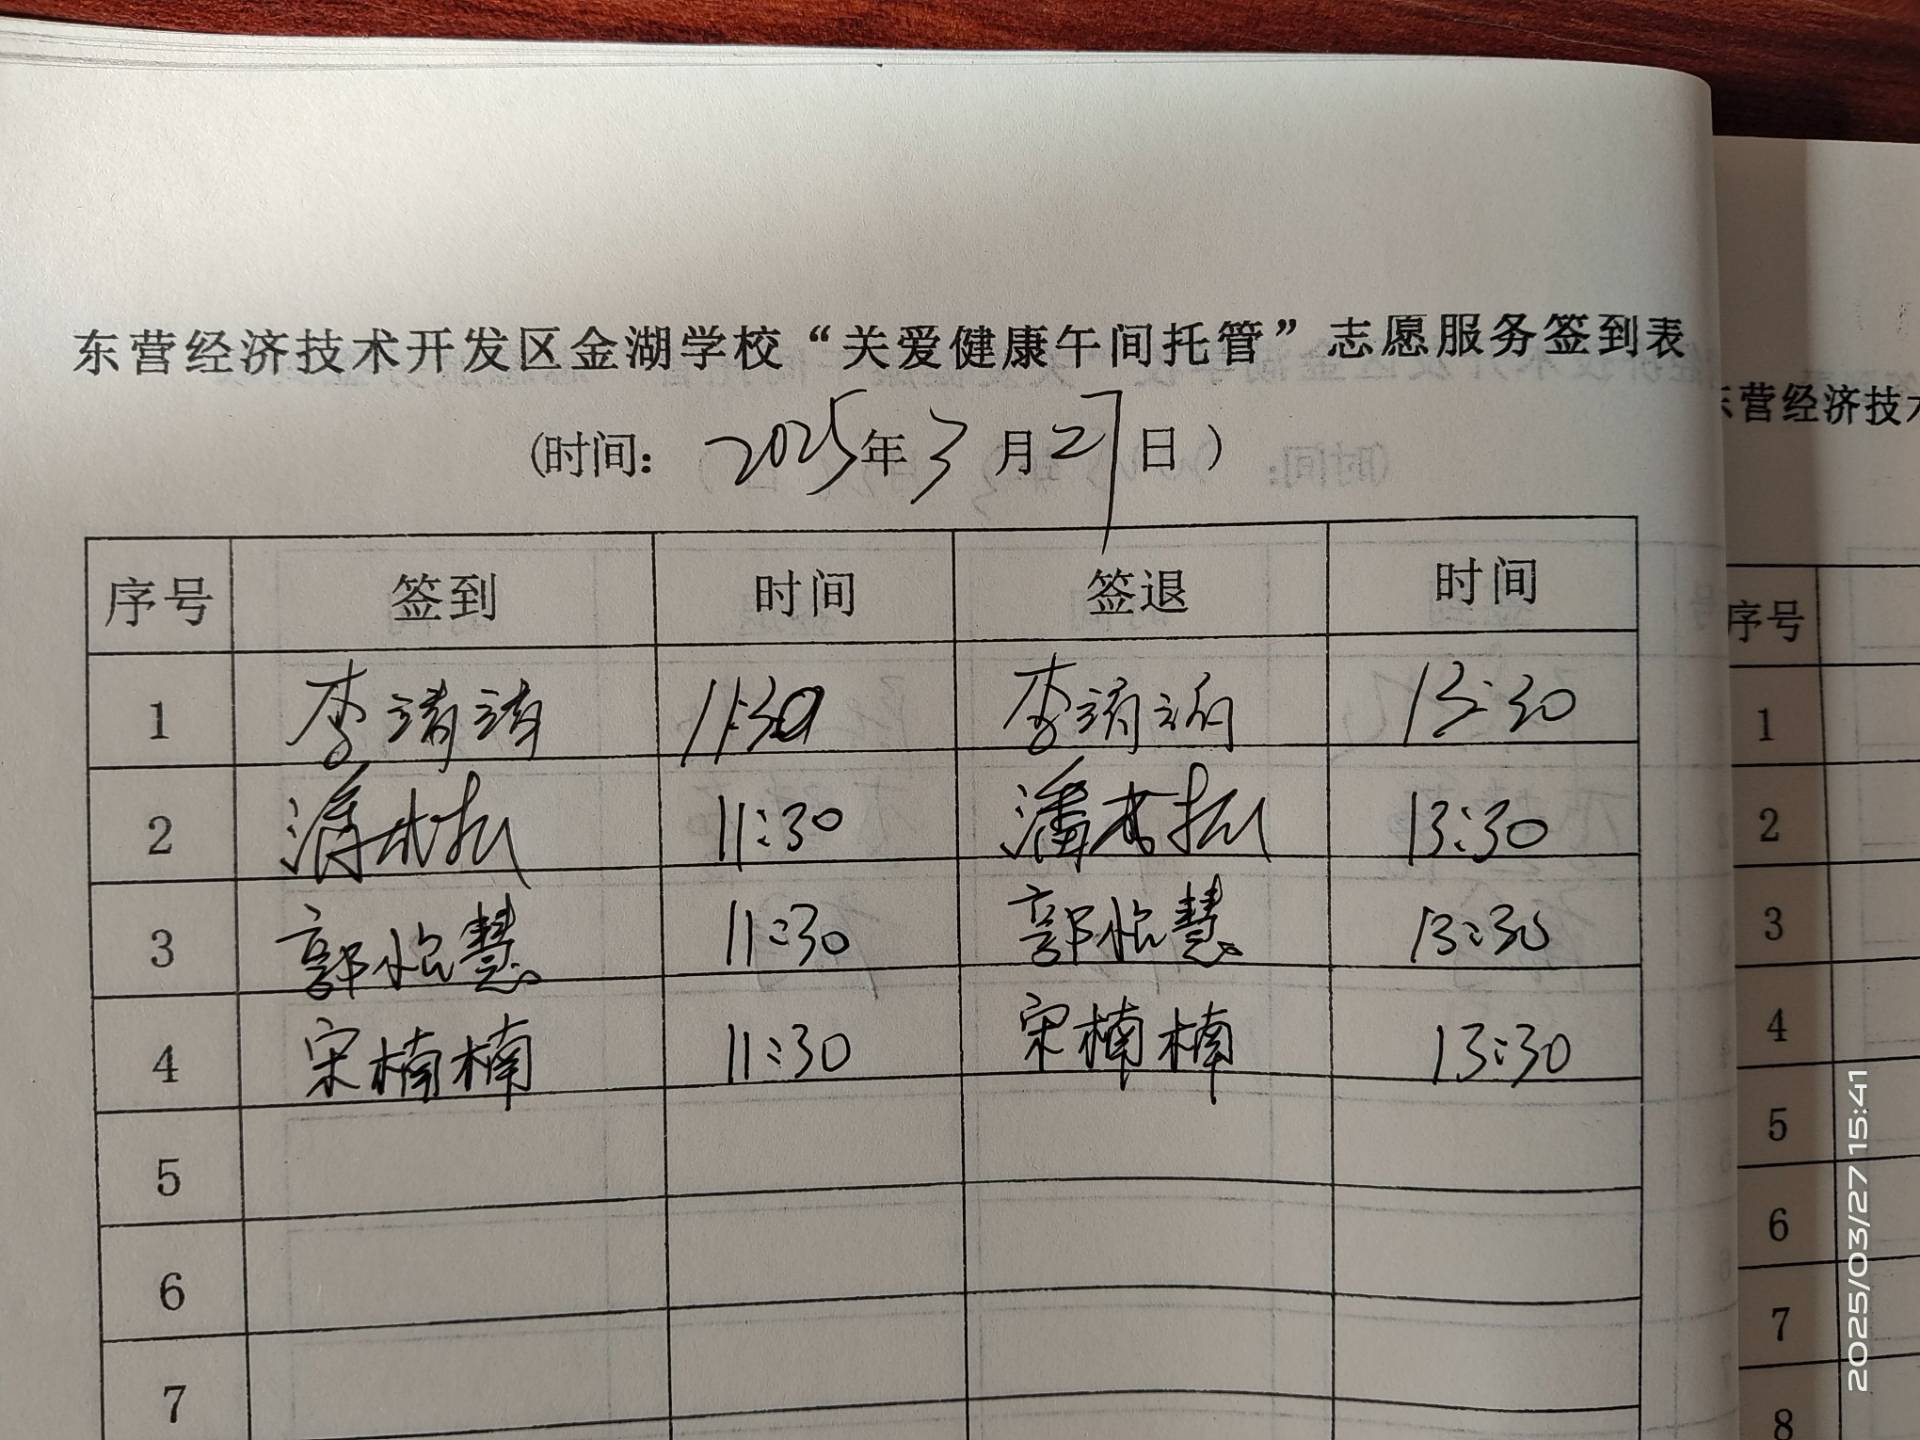 东营经济技术开发区金湖学校“关爱健康午间托管”志愿服务签到表
(时间: 2025年3月27日)
序号 签到 时间 签退 时间
1 李靖靖 11:30 李靖靖 13:30
2 潘 11:30 潘 13:30
3 郭怡慧 11:30 郭怡慧 13:30
4 宋楠楠 11:30 宋楠楠 13:30
5
6
7
营经济技
序号
1
2
3
4
5
6
7
8
2025/03/27 15:41